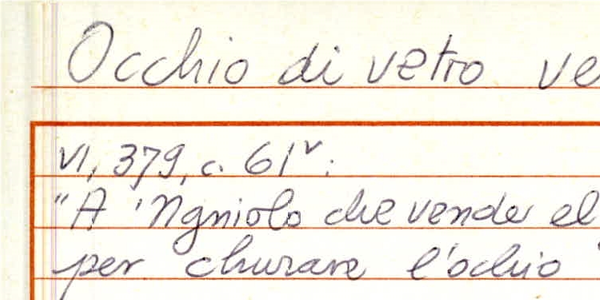 Occhio di vetro ve
VI, 379, c. 61v:
"A 'Ngniolo che vende el
per churare l'ochio"